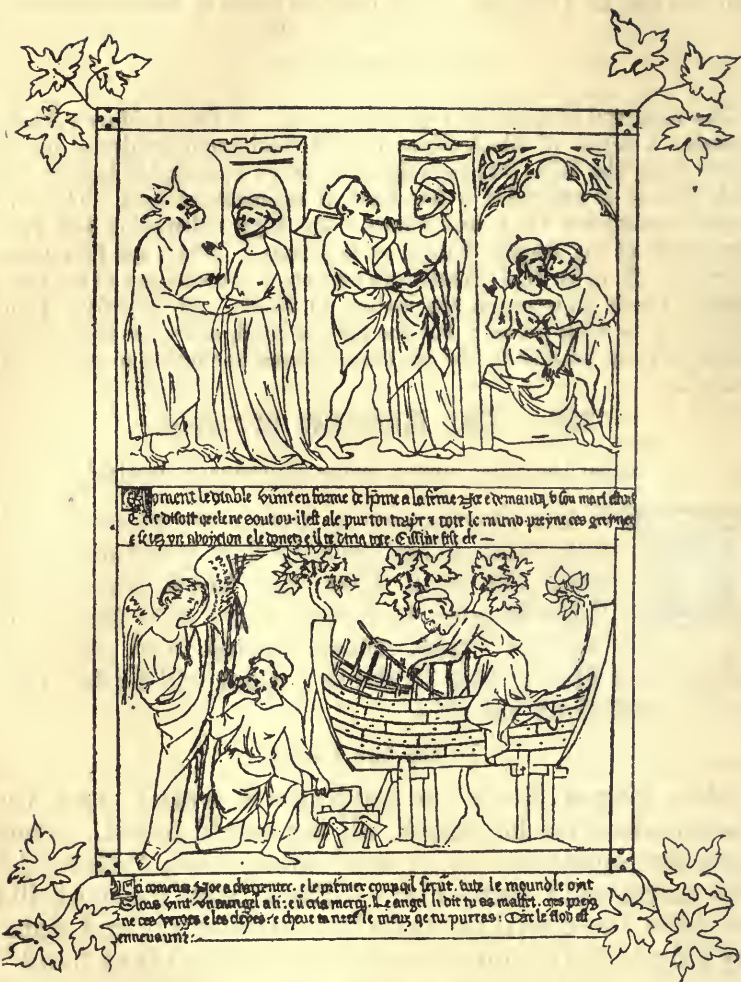 Coment le diable vint en forme de home a la feme Noe e demanda v son mari estoit
E ele disoit qe ele ne sout ou. il est ale pur toi trayr & tote le mund. preyne ces greynes
e fetez un aboycion e le donetz e il te dirra tote. E issint fist ele —
Ici comence Noe a charpenter. e le primer coup qil ferut. tute le mound le oyt
Loas vint un aungel a li: e il cria mercy. Le angel li dit tu as malfet. mes preyn
ne ces verges e les cloyes: e cheve ta neef le mieuz qe tu purras: Car le flod est
en nevaunt: